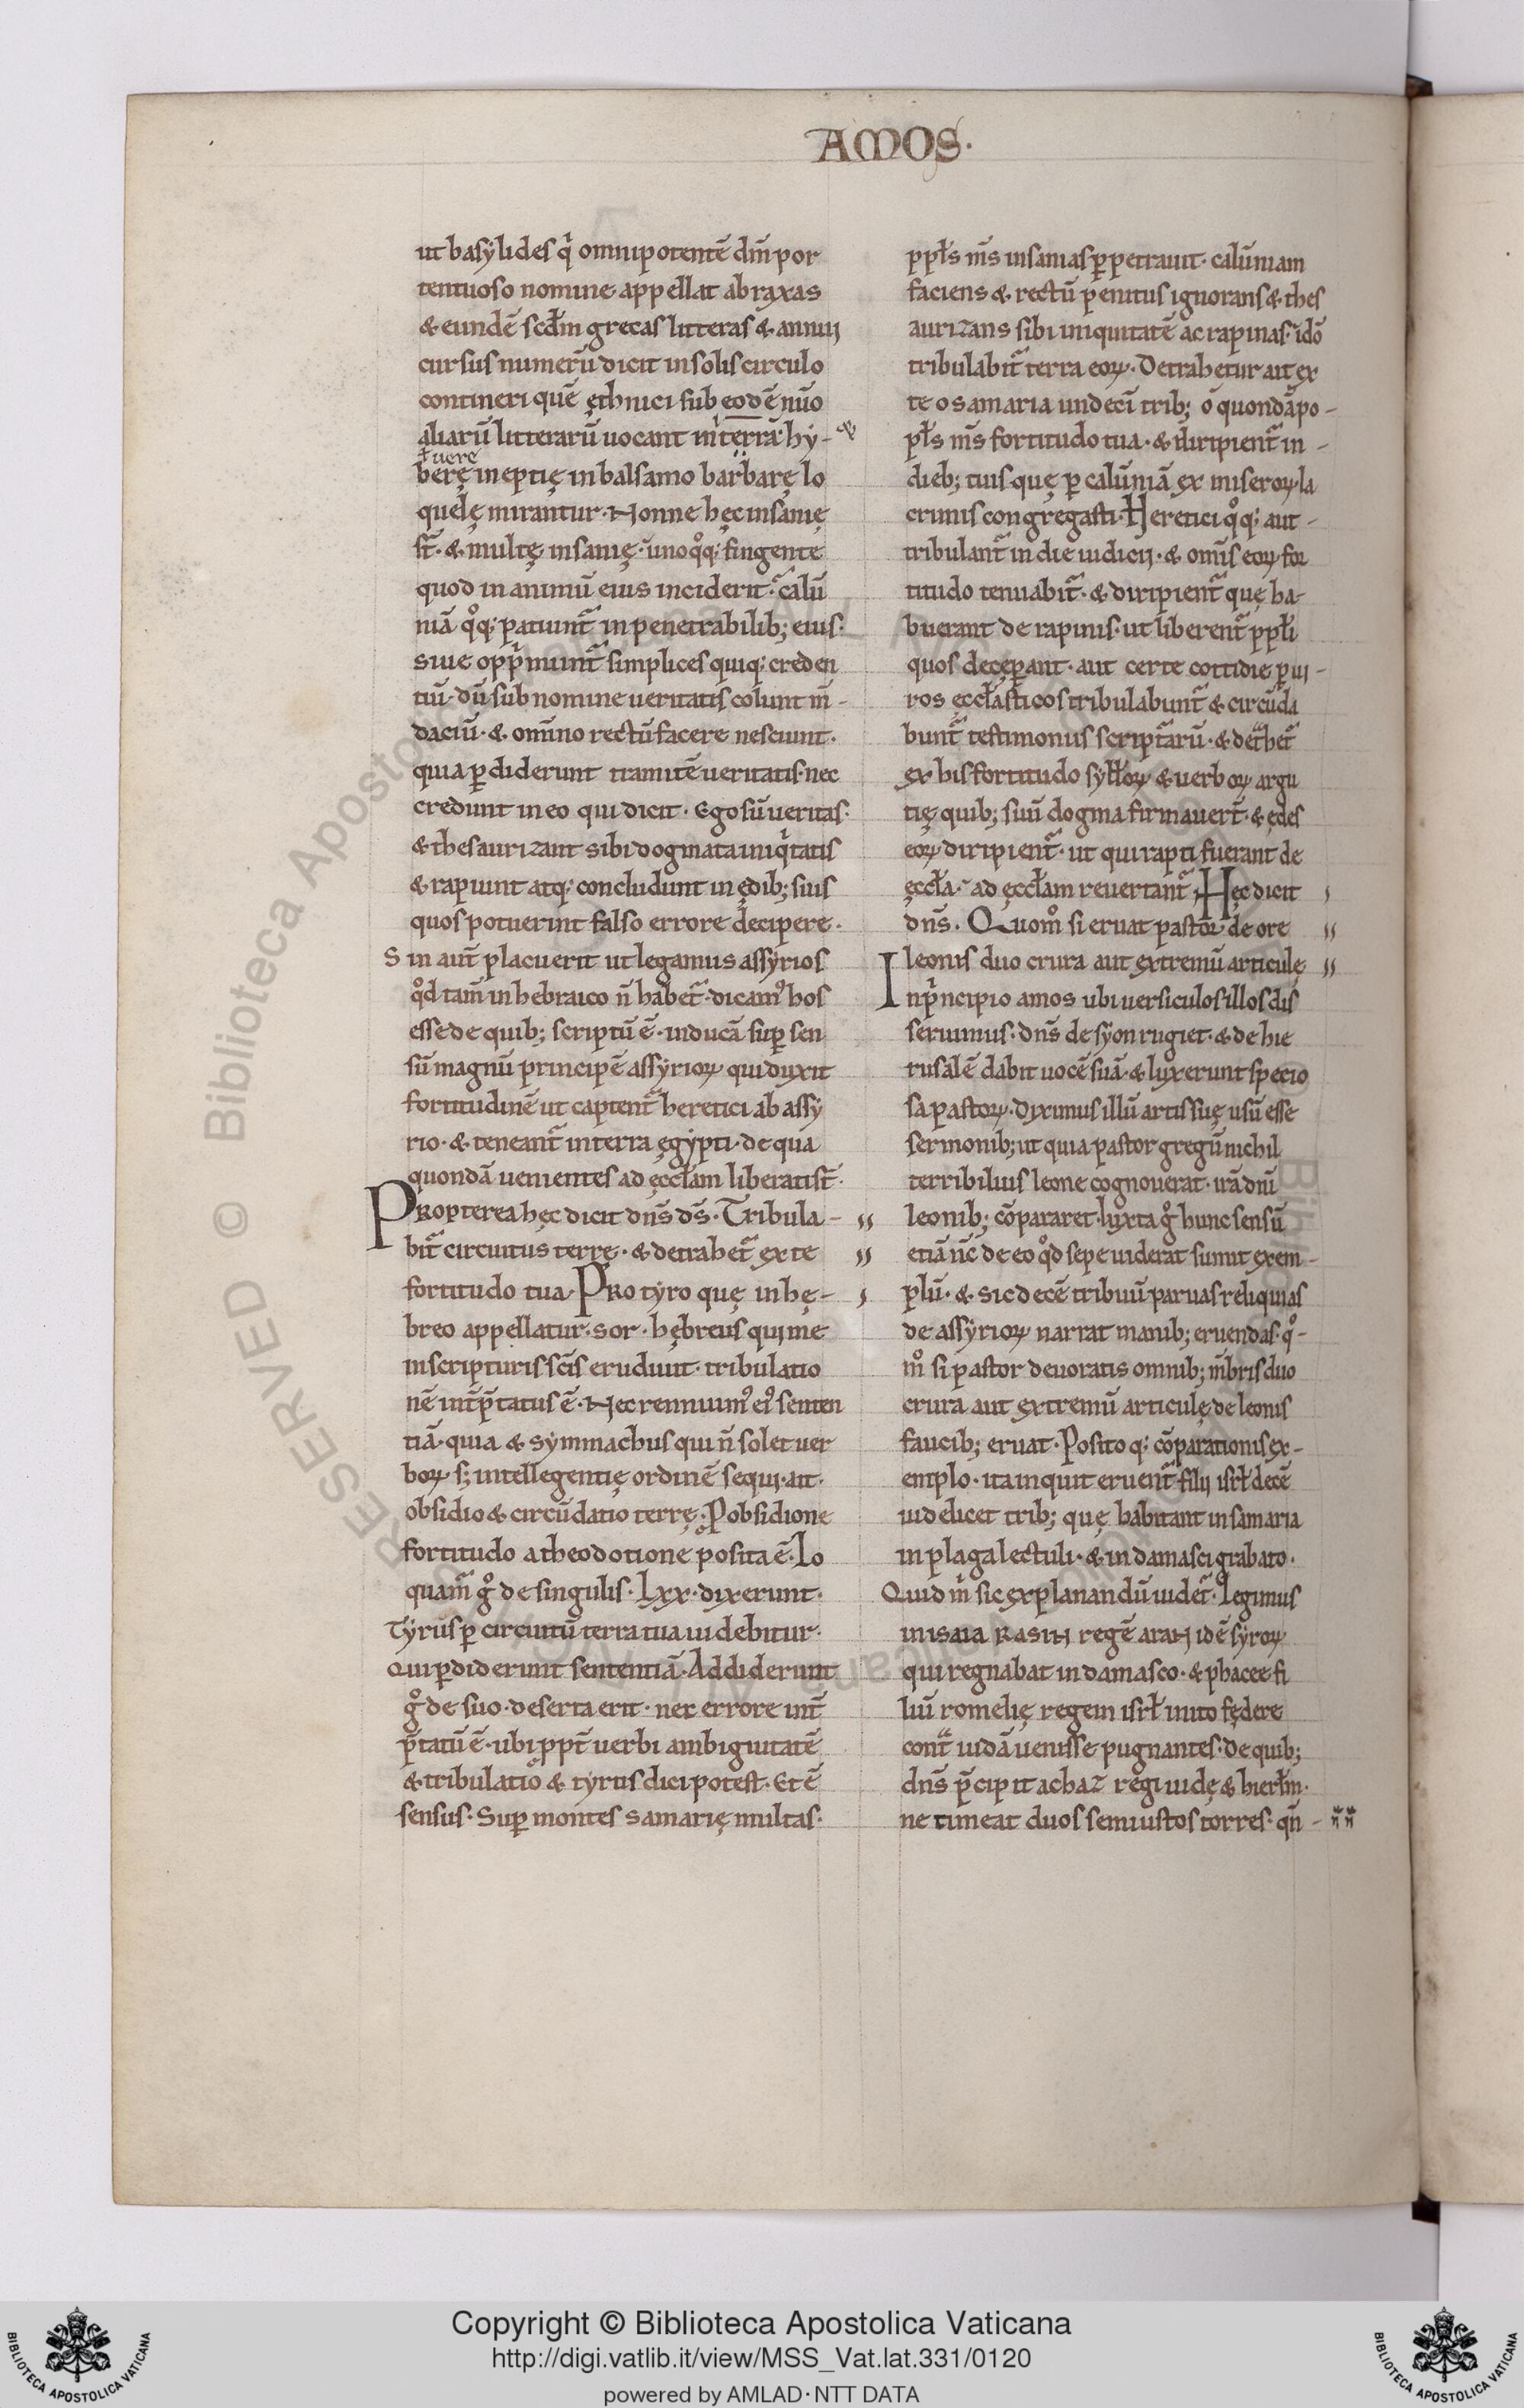 AMOS.
ut basylides q̇ omnipotentē dm̄ por
tentuoso nomine appellat abraxas
& eundē scd̄m grecas litteras & annui
cursus numerū dicit in solis circulo
contineri quē ęthnici sub eodē nūo
aliarū litterarū uocant mi̇terrā· hy-
fuere
berę ineptię in balsamo barbarę lo
quelę mirantur· Nonne hęc insanię
st̄· & multę insanię· unoqͦq; fingente
quod in animū eius inciderit· calū
niā qͦq; patiunt᷑ in penetrabilib; eius·
siue opṗmunt᷑ simplices quiq; creden
tiū· dū sub nomine ueritatis colunt m̄-
daciū· & omīno rectū facere nesciunt·
quia ꝑdiderunt tramitē ueritatis· nec
credunt in eo qui dicit· Ego sū ueritas·
& thesaurizant sibi dogmata iniq̇tatis
& rapiunt atq; concludunt in ędib; suis
quos potuerint falso errore decipere·
Sin aut̄ placuerit ut legamus assyrios
qͦd tam̄ in hebraico n̄ habet᷑· dicam᷒ hos
esse de quib; scriptū ē· inducā sup̱ sen
sū magnū principē assyrioꝝ qui duxit
fortitudinē ut captent᷑ heretici ab assy
rio· & teneant᷑ in terra ęgypti· de qua
quondā uenientes ad ęccłam liberati st̄·
Propterea hęc dicit dn̄s ds̄· Tribula-
bit᷑ circuitus terre· & detrahet᷑ ex te
fortitudo tua· Pro tyro quę in hę-
breo appellatur· sor· hębreus qui me
in scripturis sc̄is erudiuit· tribulatio
nē int̄p̄tatus ē· Nec rennuim᷒ ei᷒ senten
tiā· quia & symmachus qui n̄ solet uer
boꝝ s; intellegentię ordinē sequi· ait·
obsidio & circūdatio terrę· P obsidione
fortitudo a theodotione posita ē· Lo
quam᷑ gͦ de singulis· Lxx· dixerunt·
Tyrus ꝑ circuitū terra tua uidebitur·
Qui ꝑdiderunt sententiā· Addiderunt
gͦ de suo· deserta erit· nec errore int̄
p̄tatū ē· ubi ppt̄ uerbi ambiguitatē
& tribulatio & tyrus dici potest· Et ē
sensus· Sup̱ montes samarię multas·
ppłs ms̄ insanias ꝑpetrauit· calūniam
faciens & rectū penitus ignorans & thes
aurizans sibi iniquitatē ac rapinas· idō
tribulabit᷑ terra eoꝝ· Detrahetur ait ex
te o samaria undeci trib; o quondā po-
płs ms̄ fortitudo tua· & diripient᷑ in-
dieb; tuis quę ꝑ calūniā ex miseroꝝ la
crimis congregasti· Heretici qͦq; aut-
tribulant᷑ in die iudicij· & omīs eoꝝ for
titudo tenuabit᷑· & diripient᷑ quę ha-
buerant de rapinis· ut liberent᷑ ppłi
quos decęperant· aut certe cottidie ꝑ ui-
ros ęccłasticos tribulabunt᷑ & circūda
bunt᷑ testimoniis scripturarū· & detᷓhet᷑
ex his fortitudo syłłoꝝ & uerboꝝ argu
tię quib; suū dogma firmauert̄· & ędes
eoꝝ diripient᷑· ut qui rapti fuerant de
ęccła· ad ęccłam reuertant᷑; Hęc dicit
dn̄s· Quomͦ si eruat pastor de ore
leonis duo crura aut extremū articulę
In ṗncipio amos ubi uersiculos illos dis
seruimus· dn̄s de syon rugiet· & de hie
rusalē dabit uocē suā· & luxerunt specio
sa pastoꝝ· diximus illū artis suę usū esse
sermonib; ut quia pastor gregū nichil
terribilius leone cognouerat· irā dn̄i
leonib; cōpararet· Iuxta gͦ hunc sensū
etiā nc̄ de eo qͦd sepe uiderat sumit exem-
plū· & sic decē tribuū paruas reliquias
de assyrioꝝ narrat manib; eruendas· qͦ-
mͦ si pastor deuoratis omnib; m̄bris duo
crura aut extremū articulę de leonis
faucib; eruat· Posito q; cōparationis ex-
emplo· ita inquit eruent᷑ filij isrł decē
uidelicet trib; quę habitant in samaria
in plaga lectuli· & in damasci grabato·
Quid ṁ sic explanandū uidet᷑· Legimus
in isaia RASIN regē araN idē syroꝝ
qui regnabat in damasco· & phacee fi
liū romelię regem isrł inito fędere
contᷓ iudā uenisse pugnantes· de quib;
dn̄s p̄cipit achaz regi iudę & hierłm·
ne timeat duos semiustos torres· qn̄-
RESERVED © Biblioteca Apostolica Vaticana
Copyright © Biblioteca Apostolica Vaticana
http://digi.vatlib.it/view/MSS_Vat.lat.331/0120
powered by AMLAD·NTT DATA
BIBLIOTECA APOSTOLICA VATICANA
BIBLIOTECA APOSTOLICA VATICANA